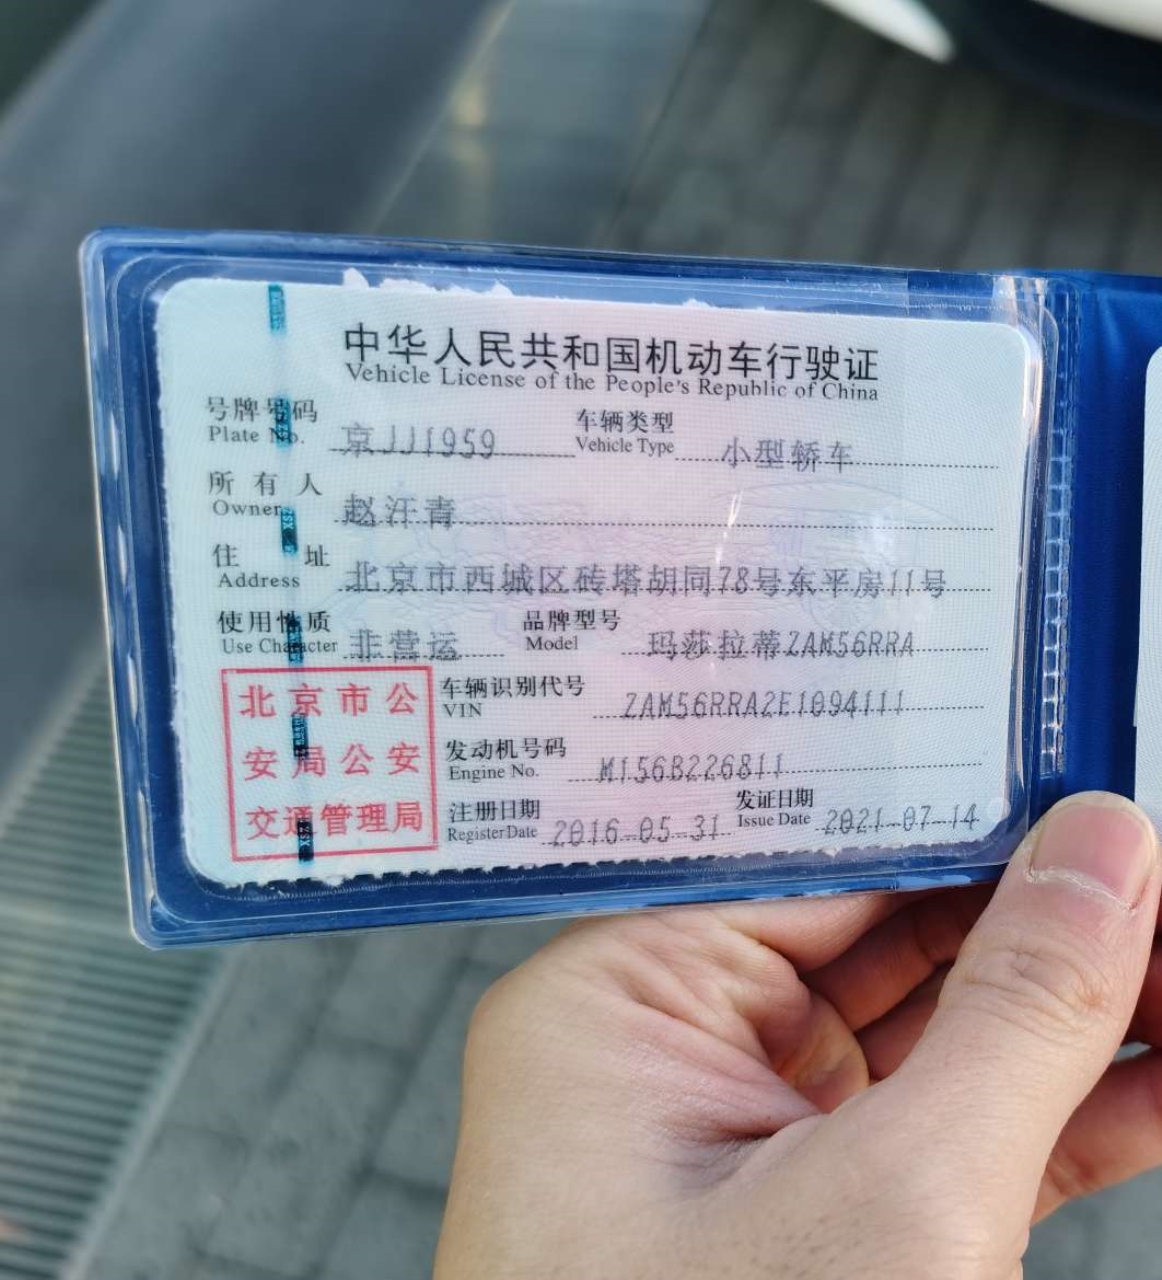 中华人民共和国机动车行驶证
Vehicle License of the People's Republic of China
号牌号码 京JJ1959 车辆类型 小型轿车
Plate No. Vehicle Type
所有人 赵汗青
Owner
住址 北京市西城区砖塔胡同78号东平房11号
Address
使用性质 非营运 品牌型号 玛莎拉蒂ZAM56RRA
Use Character Model
北京市公
安局公安
交通管理局
车辆识别代号 ZAM56RRA2E1094111
VIN
发动机号码 M156B226811
Engine No.
注册日期 2016-05-31 发证日期 2021-07-14
Register Date Issue Date